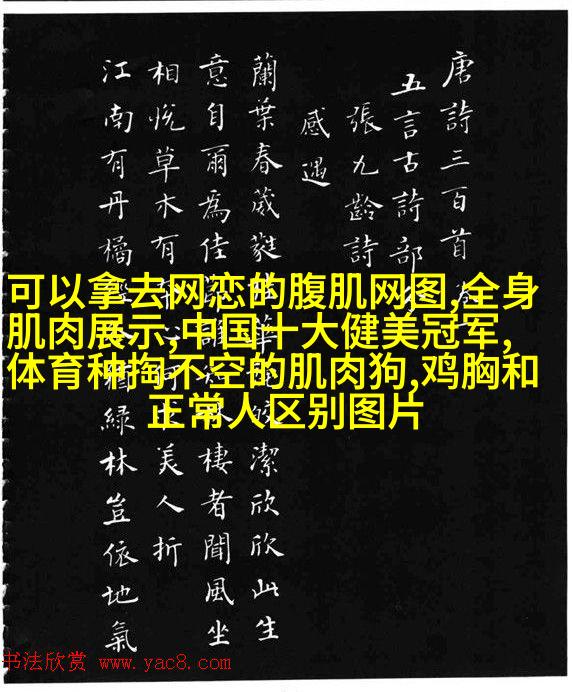 唐詩三百首
五言古詩部
張九齡詩
感遇
蘭葉春葳蕤潔欣欣此生
意自爾為佳棲者聞風坐
相悅草木有美人折
江南有丹橘綠林豈依地氣
可以拿去网恋的腹肌网图,全身
肌肉展示,中国十大健美冠军,
体育种掏不空的肌肉狗,鸡胸和
正常人区别图片
书法欣赏 www.yac8.com